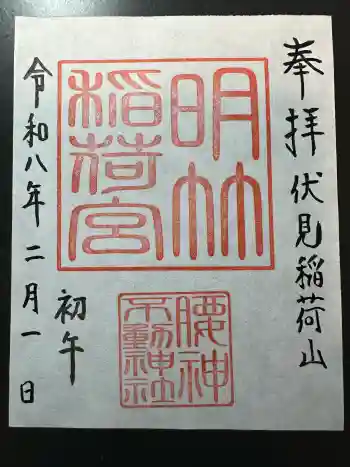 奉拝 伏見稲荷山
明竹
稲荷宮
腰神
不動神社
初午
令和八年二月一日